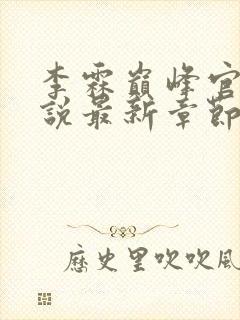 李霖巔峰官
說最新章節
歷史里吹吹風